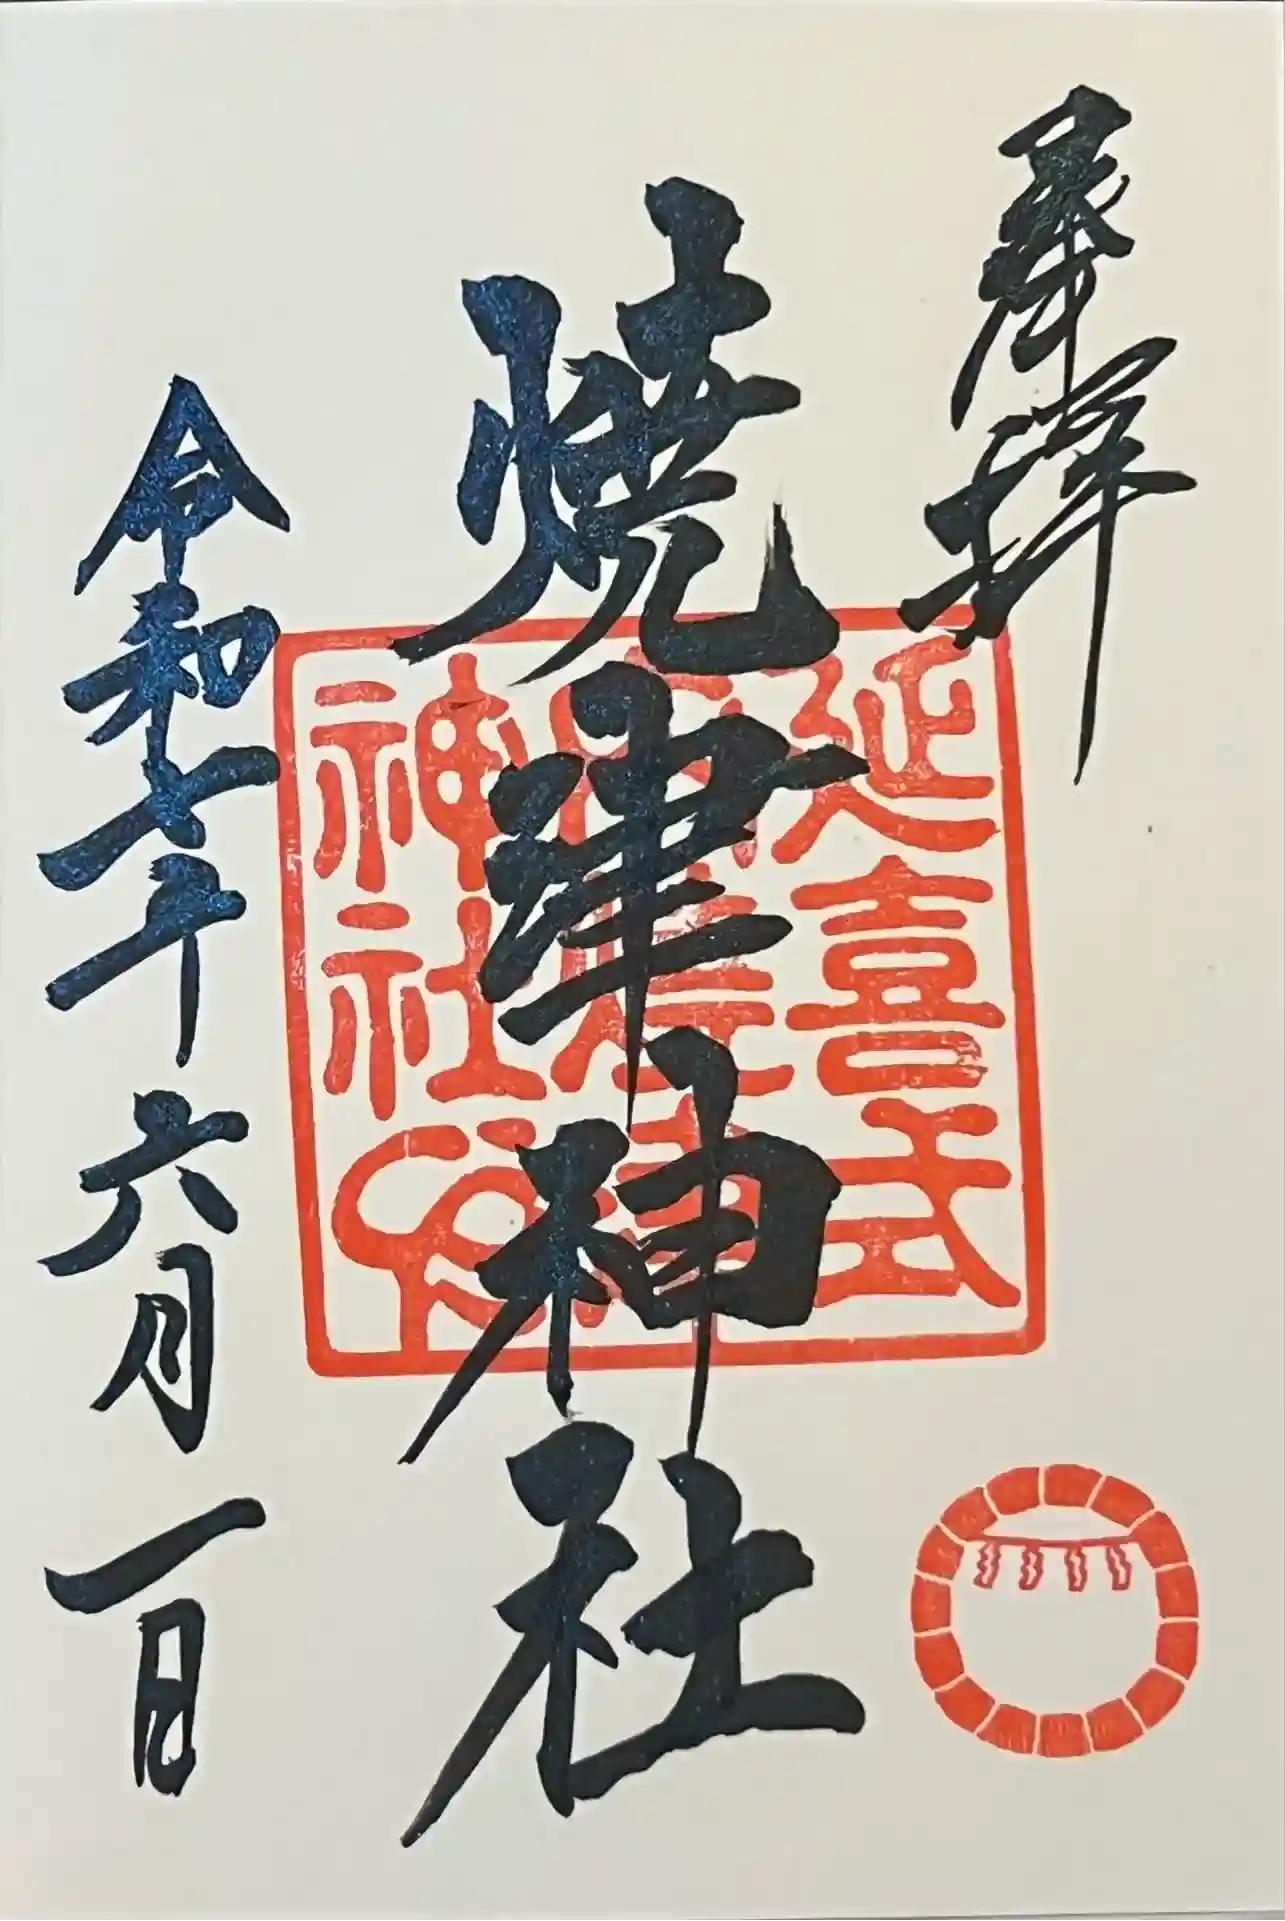 奉拝
焼津神社
令和七年六月一日
延喜式
内焼津
神社印